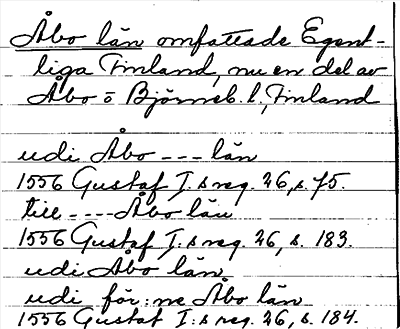 Åbo län omfattade Egent-
liga Finland, nu en del av
Åbo o Björneb. l., Finland
udi Åbo --- län
1556 Gustaf I:s reg. 26, s. 75.
till ---- Åbo län
1556 Gustaf I:s reg. 26, s. 183.
udi Åbo län
udi för:ne Åbo län
1556 Gustaf I:s reg. 26, s. 184.